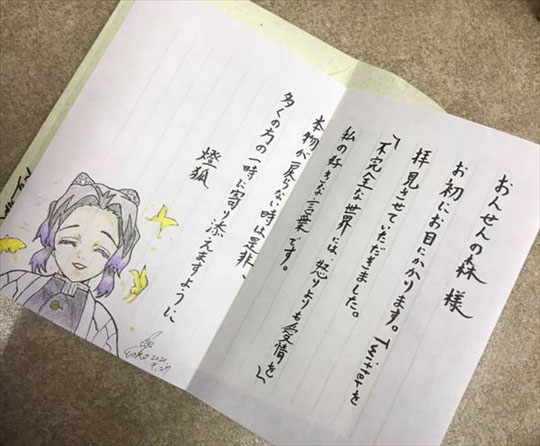 おんせんの森 様
お初にお目にかかります。Twitterを
拝見させていただきました。
「不完全な世界には、怒りよりも愛情を」
私の好きな言葉です。
本物が戻らない時は是非、
多くの方の一時に寄り添えますように
燈狐
2020
9.27